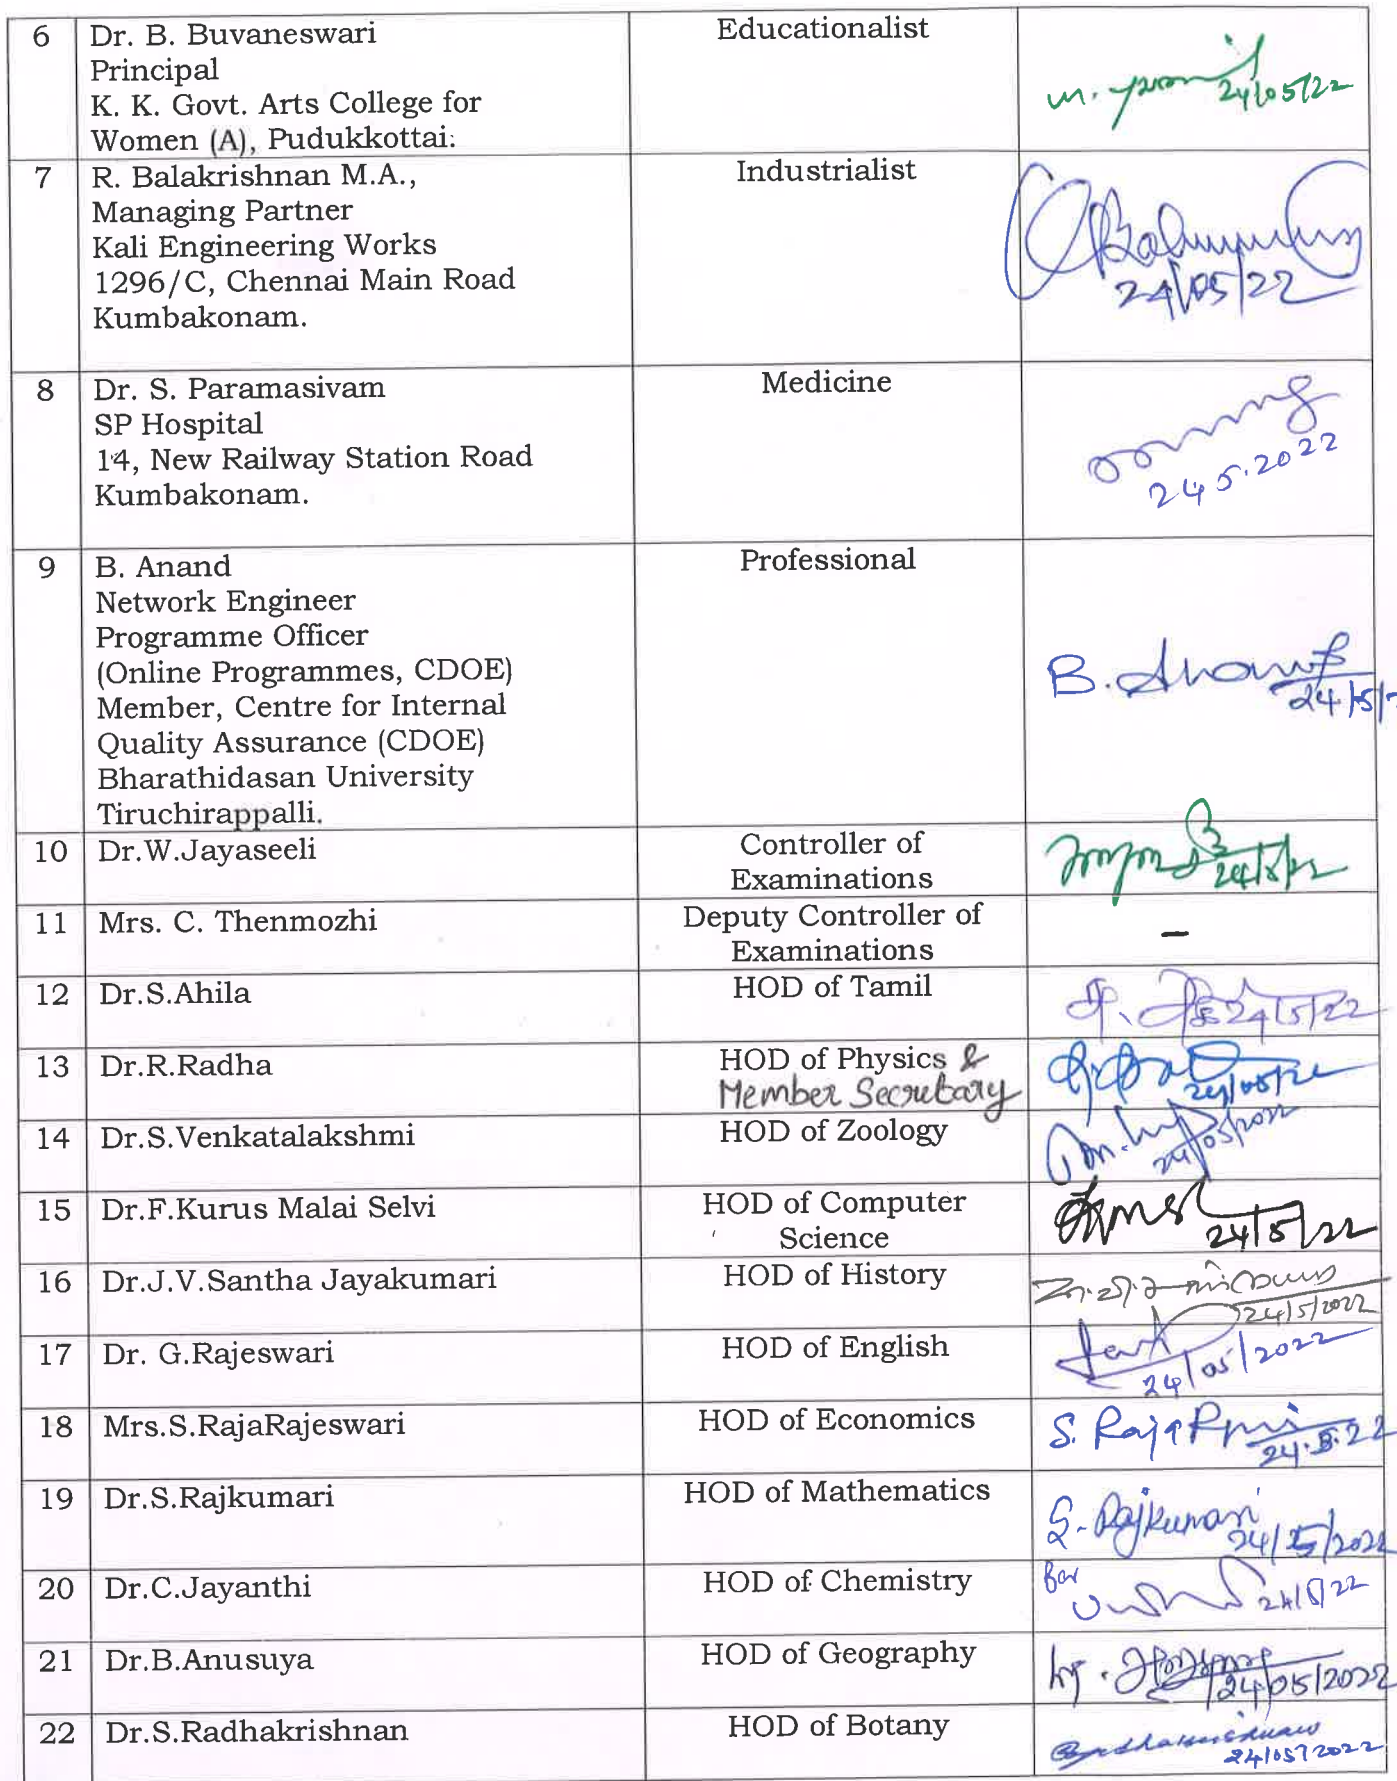 6 Dr. B. Buvaneswari Educationalist
Principal
K. K. Govt. Arts College for 24/05/22
Women (A), Pudukkottai.
7 R. Balakrishnan M.A., Industrialist
Managing Partner
Kali Engineering Works
1296/C, Chennai Main Road 24/05/22
Kumbakonam.
8 Dr. S. Paramasivam Medicine
SP Hospital
14, New Railway Station Road
Kumbakonam. 24.5.2022
9 B. Anand Professional
Network Engineer
Programme Officer
(Online Programmes, CDOE) B. Anand
Member, Centre for Internal 24/5/
Quality Assurance (CDOE)
Bharathidasan University
Tiruchirappalli.
10 Dr.W.Jayaseeli Controller of
Examinations 24/5/22
11 Mrs. C. Thenmozhi Deputy Controller of
Examinations –
12 Dr.S.Ahila HOD of Tamil 24/5/22
13 Dr.R.Radha HOD of Physics &
Member Secretary 24/05/22
14 Dr.S.Venkatalakshmi HOD of Zoology 24/05/2022
15 Dr.F.Kurus Malai Selvi HOD of Computer
Science 24/5/22
16 Dr.J.V.Santha Jayakumari HOD of History
24/5/2022
17 Dr. G.Rajeswari HOD of English
24/05/2022
18 Mrs.S.RajaRajeswari HOD of Economics S. Raja
24.5.22
19 Dr.S.Rajkumari HOD of Mathematics S. Rajkumari
24/5/2022
20 Dr.C.Jayanthi HOD of Chemistry for
24/5/22
21 Dr.B.Anusuya HOD of Geography
24/05/2022
22 Dr.S.Radhakrishnan HOD of Botany Radhakrishnan
24/05/2022